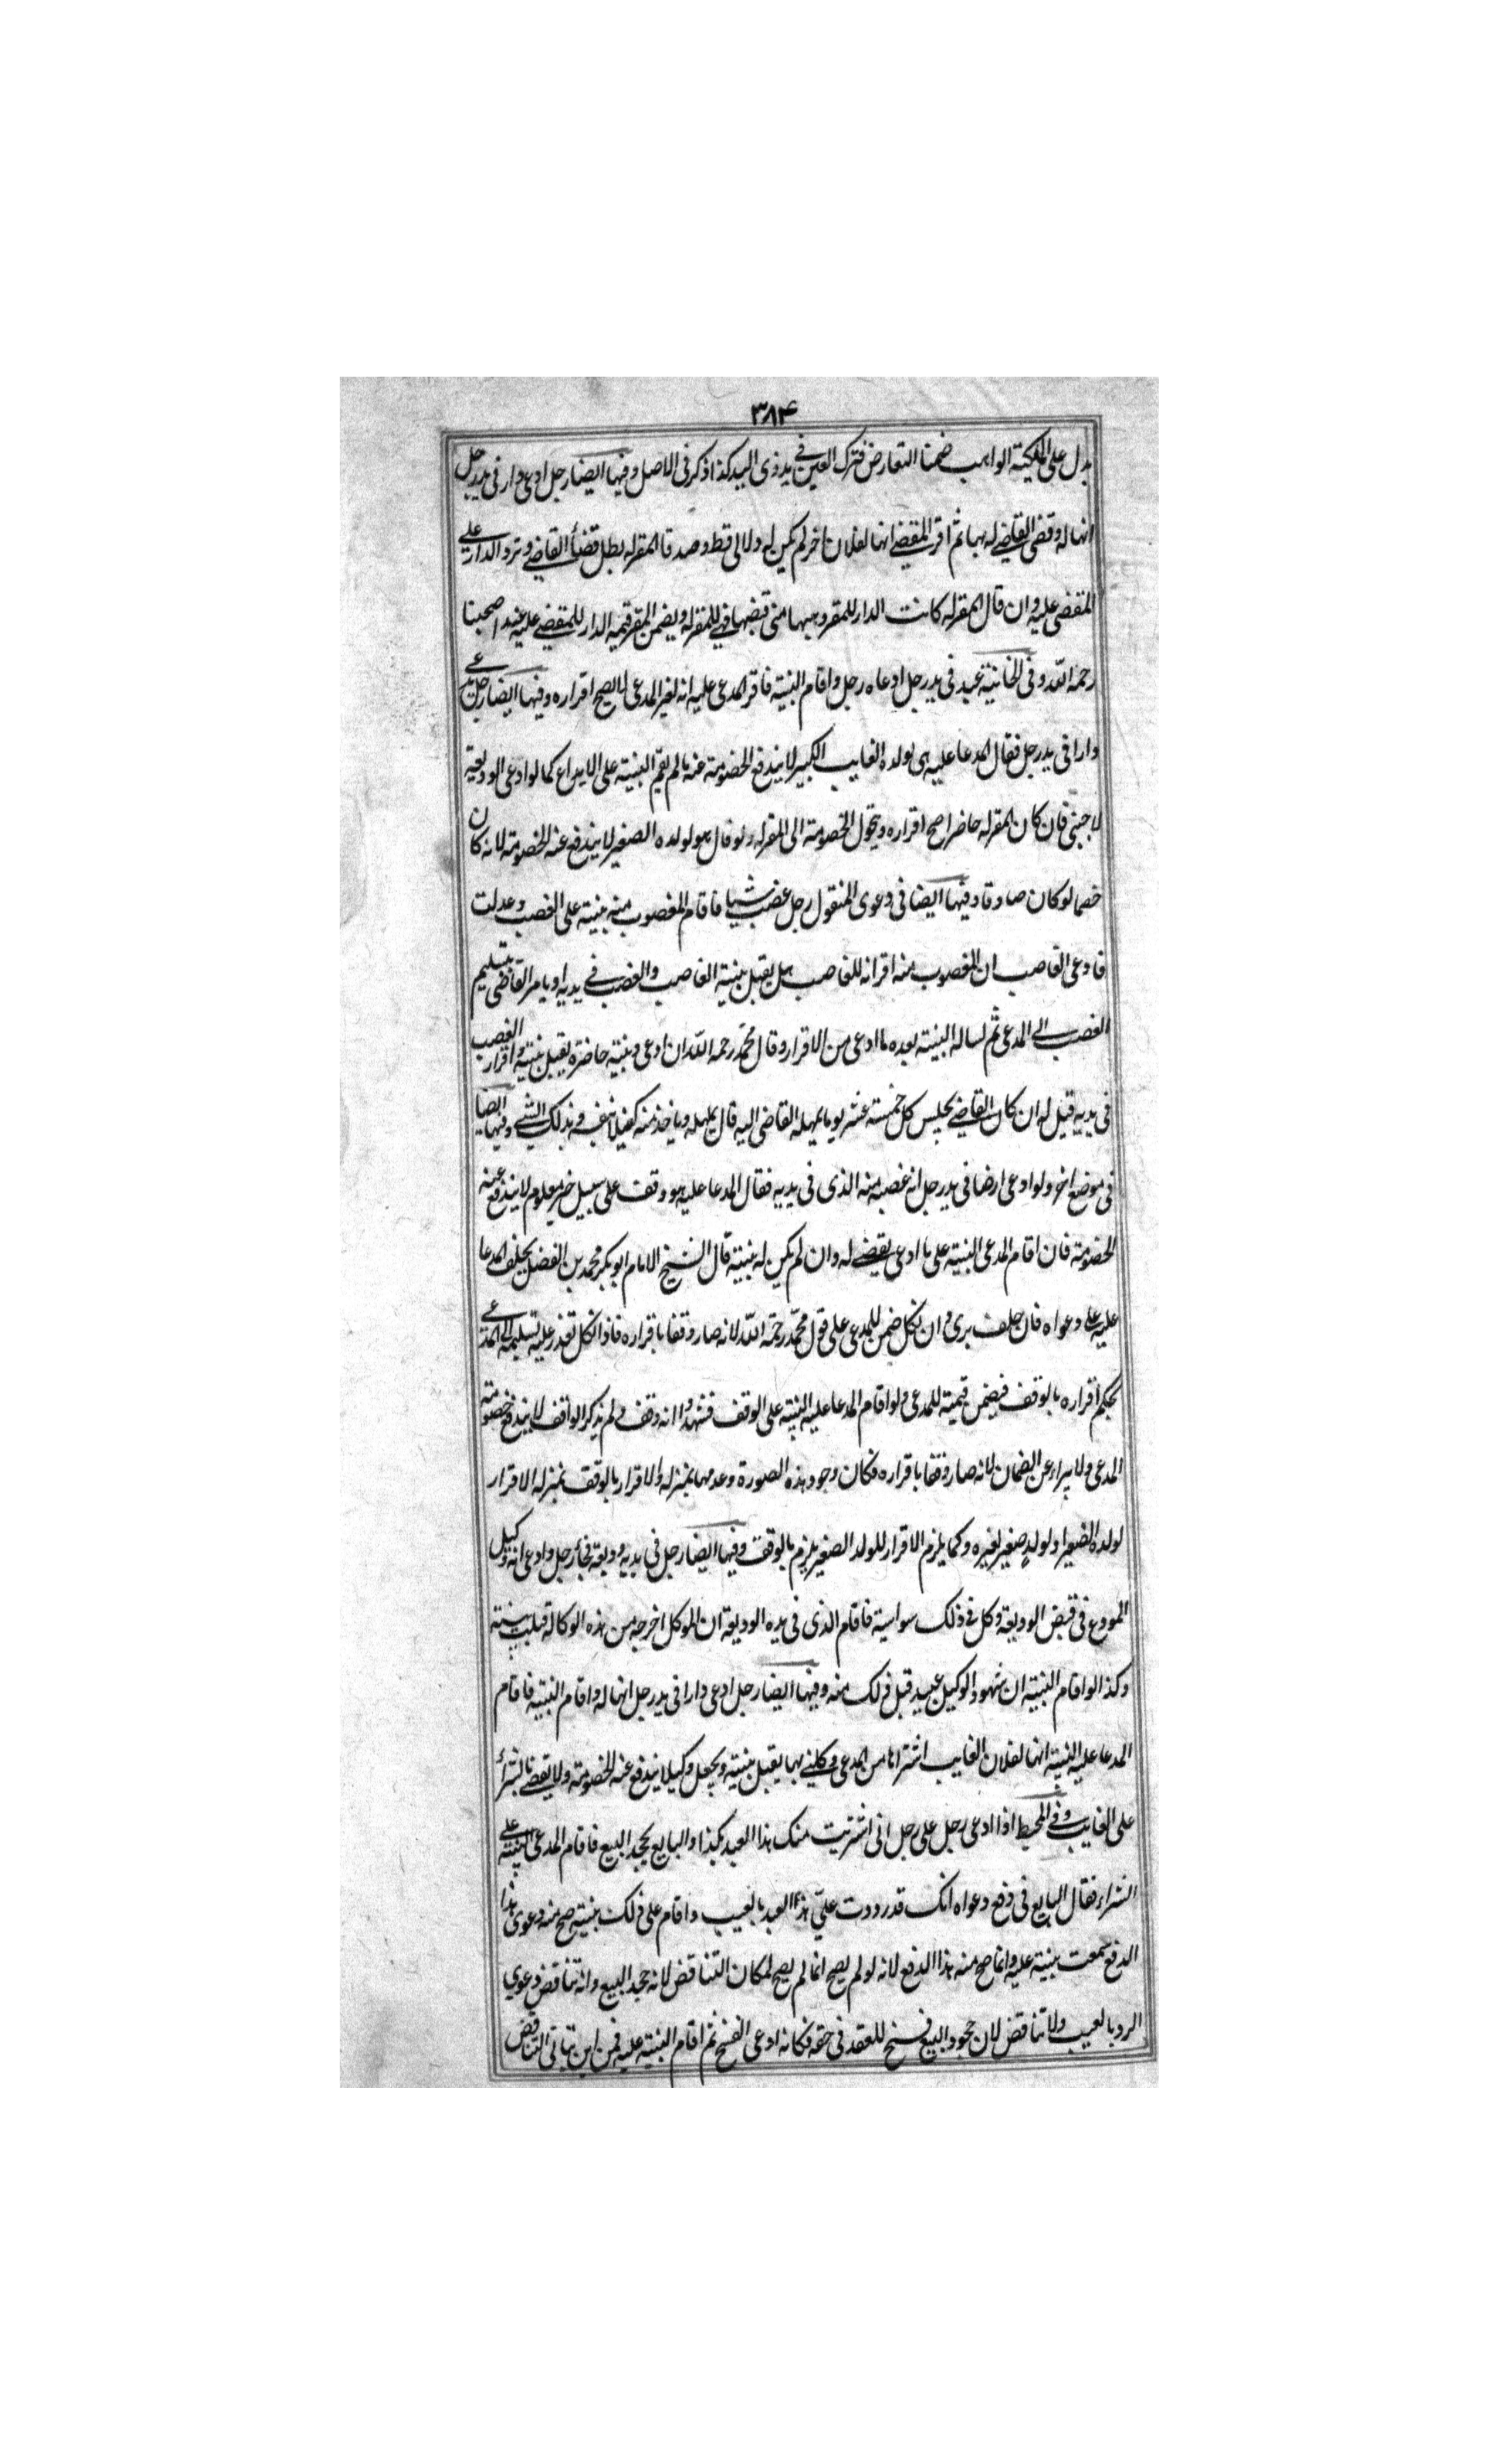 ۳۸۴
يدل على الملكية الواهب ضمنا التعارض فترك العين فى يد ذى اليد كذا ذكر فى الاصل وفيها ايضا رجل ادعى دار فى يد رجل
انها له وقضى القاضے له بها ثم اقر المقضے انها لفلان اخر لم يكن له ولا لى قط وصدقا المقر له بطل قضأ القاضے وترد الدار على
المقضى عليه وان قال المقر له كانت الدار للمقر وهبها منى قبضها فهے للمقر له ويضمن المقر قيمة الدار للمقضے عليه عند اصحبنا
رحمه اللّه وفى الخانية عبد فى يد رجل ادعاه رجل واقام البنية فاقر المدعى عليه انه لغير المدعى لا يصح اقراره وفيها ايضا رجل يدعے
دارا فى يد رجل فقال المدعا عليه هى لولده الغايب الكبير لا يندفع الخصومة عنه ما لم يقم البنية على الايداع كما لو ادعى الوديعة
لاجنبى فان كان المقر له حاضرا صح اقراره وتحول الخصومة الى المقر له ولو قال هو لولده الصغير لا يندفع عنه الخصومة لانه كان
خصما لو كان صادقا وفيها ايضا فى دعوى المنقول رجل غصب شيا فاقام المغصوب منه بنية على الغصب وعدلت
فادعى الغاصب ان المغصوب منه اقر انه للغاصب هل يقبل بنية الغاصب والغصب فے يديه او يامر القاضى بتسليم
الغصب الى المدعى ثم لساله البنية بعده ما ادعى من الاقرار وقال محمد رحمه اللّه ان ادعى وبنية حاضرة يقبل بنيته واقرار الغصب
فى يديه قيل له ان كان القاضے يجلس كل خمسة عشر يوما يمهله القاضى اليه قال يمهله وياخذ منه كفيلا بنفسه وبذلك الشے وفيها ايضا
فى موضع اخر ولو ادعى ارضا فى يد رجل انه غصبه منه الذى فى يديه فقال المدعا عليه هو وقف على سبيل خير معلوم لا يندفع عنه
الخصومة فان اقام المدعى البنية على ما ادعى يقضے له وان لم يكن له بنية قال الشيخ الامام ابو بكر محمد بن الفضل يحلف المدعا
عليه على دعواه فان حلف برى وان نكل ضمن للمدعى على قول محمد رحمة اللّه لانه صار وقفا باقراره فاذا نكل تعذر عليه تسليمه الى المدعے
بحكم اقراره بالوقف فيضمن قيمته للمدعى ولو اقام المدعا عليه البنية على الوقف فشهدوا انه وقف ولم يذكر الواقف لا يندفع خصومته
المدعى ولا يبراء عن الضمان لانه صار وقفا باقراره فكان وجود هذه الصورة وعدمها بمنزله والاقرار بالوقف بمنزله الاقرار
لولده الصغير او لولدٍ صغير لغيره وكما يلزم الاقرار للولد الصغير يلزم بالوقف وفيها ايضا رجل فى يديه وديعة فجأ رجل وادعى انه وكيل
المودع فى قبض الوديعة وكل فے ذلك سواسية فاقام الذى فى يده الوديعة ان الموكل اخرجه من هذه الوكالة قبلت بينته
وكذا لو اقام البنية ان شهود الوكيل عبيد قبل ذلك منه وفيها ايضا رجل ادعى دارا فى يد رجل انها له واقام البنية فاقام
المدعا عليه البنية انها لفلان الغايب اشتراها من المدعى وكلنے بها يقبل بنيته ويجعل وكيلا يندفع عنه الخصومة ولا يقضے بالشرأ
على الغايب وفے المحيط اذا ادعى رجل على رجل انى اشتريت منك هذا العبد بكذا والبايع يجحد البيع فاقام المدعى البنية على
الشراء فقال البايع فى دفع دعواه انك قد رددت علىّ هذا العبد بالعيب واقام على ذلك بنية صح منه دعوى هذا
الدفع سمعت بنيته عليه وانما صح منه هذا الدفع لانه لو لم يصح انما لم يصح لمكان التناقض لانه جحد البيع وانه تناقض دعوى
الرد بالعيب ولا تناقض لان جحود البيع فسخ للعقد فى حقه فكانه ادعى الفسخ ثم اقام البنية عليه فمن اين يتاتى التناقض